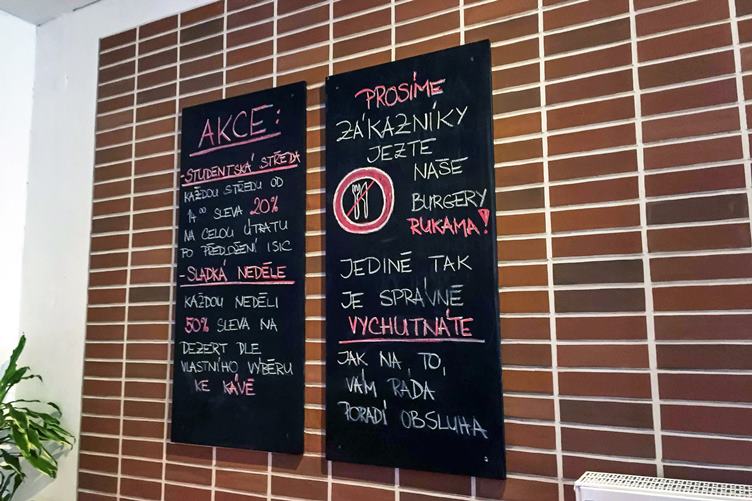 AKCE:
-STUDENTSKÁ STŘEDA
KAŽDOU STŘEDU OD
14.00 SLEVA 20%
NA CELOU ÚTRATU
PO PŘEDLOŽENÍ ISIC
-SLADKÁ NEDĚLE
KAŽDOU NEDĚLI
50% SLEVA NA
DEZERT DLE
VLASTNÍHO VÝBĚRU
KE KÁVĚ
PROSÍME
ZÁKAZNÍKY
JEZTE
NAŠE
BURGERY
RUKAMA!
JEDINĚ TAK
JE SPRÁVNĚ
VYCHUTNÁTE
JAK NA TO,
VÁM RÁDA
PORADÍ OBSLUHA